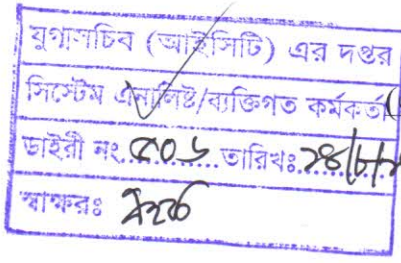 যুগ্মসচিব (আইসিটি) এর দপ্তর
সিস্টেম এনালিষ্ট/ব্যক্তিগত কর্মকর্তা
ডাইরী নং..৫০৬.........তারিখঃ.২৪/৮/
স্বাক্ষরঃ